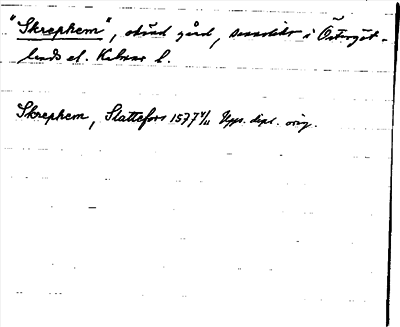 "Skrephem", okänd gård, sannolikt i Östergöt-
lands el. Kalmar l.
Skrephem, Slattefors 1577 4/11 Upps. dipl. orig.